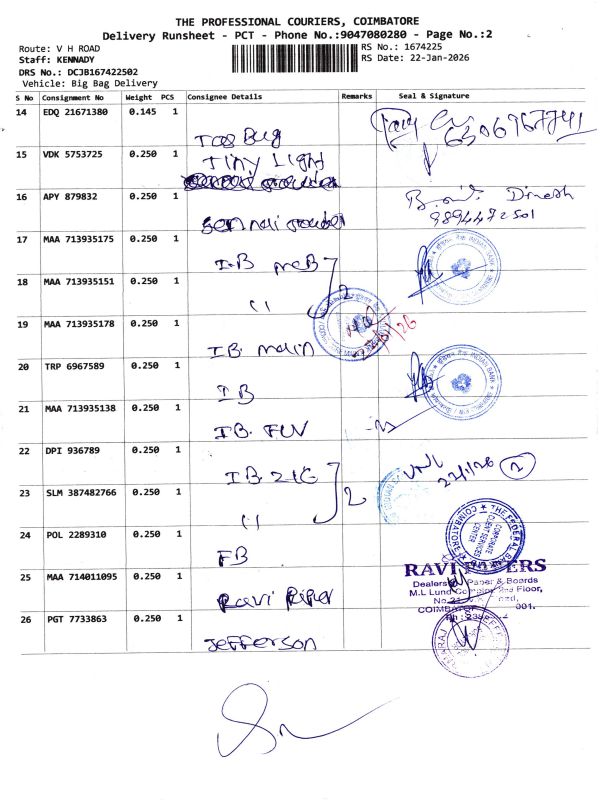 THE PROFESSIONAL COURIERS, COIMBATORE
Delivery Runsheet - PCT - Phone No.:9047080280 - Page No.:2
Route: V H ROAD
RS No.: 1674225
Staff: KENNADY
RS Date: 22-Jan-2026
DRS No.: DCJB167422502
Vehicle: Big Bag Delivery
S No Consignment No Weight PCS Consignee Details Remarks Seal & Signature
14 EDQ 21671380 0.145 1
6306967741
15 VDK 5753725 0.250 1 Tiny Light
16 APY 879832 0.250 1
Dinesh
9894472501
17 MAA 713935175 0.250 1 I.B
INDIAN BANK
18 MAA 713935151 0.250 1 11 2
19 MAA 713935178 0.250 1 IB. main
20 TRP 6967589 0.250 1 IB
INDIAN BANK
21 MAA 713935138 0.250 1 IB.
22 DPI 936789 0.250 1 IB.
2
23 SLM 387482766 0.250 1 11 2
24 POL 2289310 0.250 1 FB
THE FEDERAL BANK LTD
CORPORATE CLIENT SERVICES CENTER
COIMBATORE
25 MAA 714011095 0.250 1 Ravi
RAVI
Dealers Paper & Boards
M.L Lund Floor,
001.
26 PGT 7733863 0.250 1 Jefferson